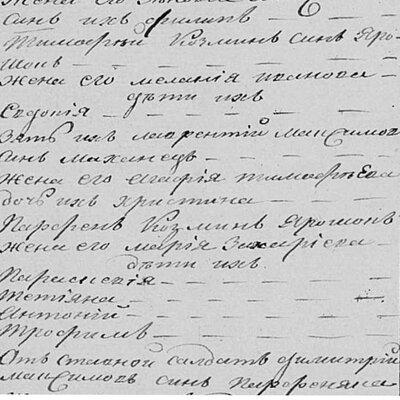 Жена его
Синъ ихъ Филипъ
Тимофѣй Козминъ синъ Яро-
шонъ
Жена его Меланія Иванова
дѣти ихъ
Евдокія
Зять ихъ Лаврентій Максимовъ
синъ Маханедъ
Жена его Агафія Тимофѣева
дочь ихъ Христина
Парфенъ Козминъ Ярошонъ
Жена его Марія Захаріева
дѣти ихъ
Параскевія
Тетіяна
Антоній
Трофимъ
Отъ ставной салдатъ Димитрій
Максимовъ синъ